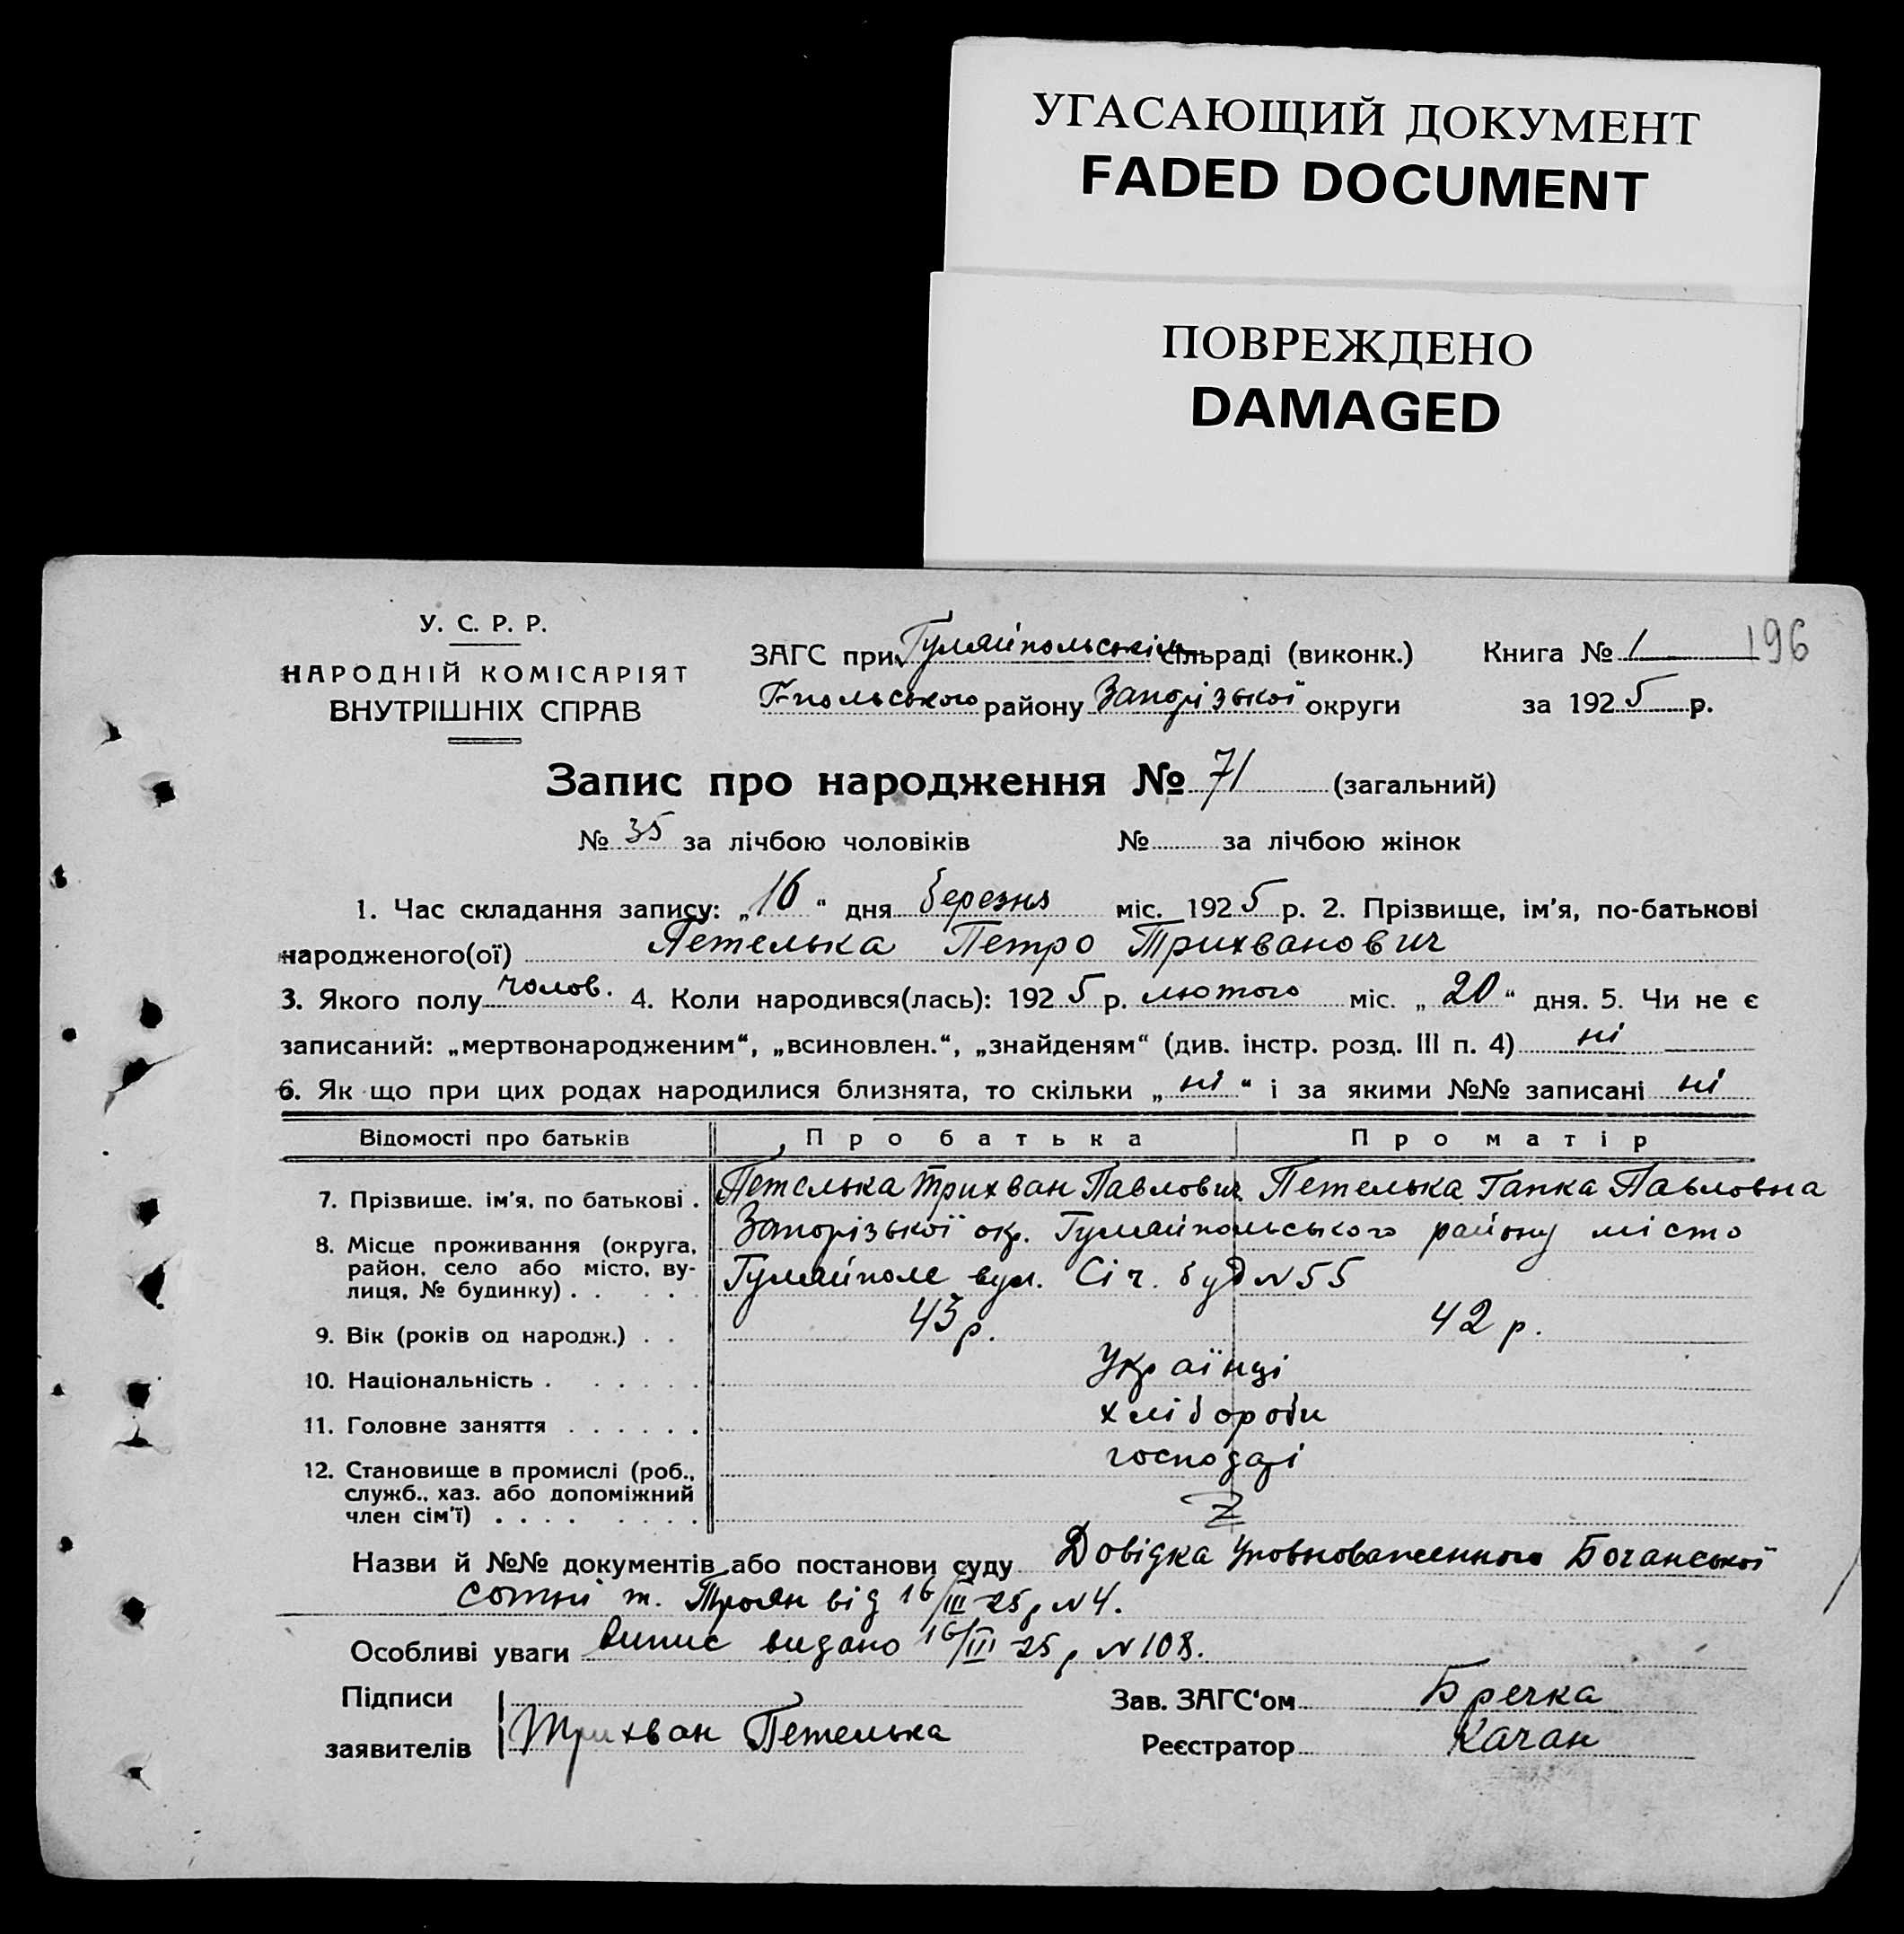 УГАСАЮЩИЙ ДОКУМЕНТ
FADED DOCUMENT
ПОВРЕЖДЕНО
DAMAGED
У. С. Р. Р.
НАРОДНІЙ КОМІСАРІЯТ
ВНУТРІШНІХ СПРАВ
ЗАГС при Гуляйпольській сільраді (виконк.)
Г-польського району Запорізької округи
Книга № 1 196
за 1925 р.
Запис про народження № 71 (загальний)
№ 35 за лічбою чоловіків № за лічбою жінок
1. Час складання запису: „16“ дня березня міс. 1925 р. 2. Прізвище, ім'я, по-батькові
народженого(ої) Петелька Петро Трихванович
3. Якого полу чолов. 4. Коли народився(лась): 1925 р. лютого міс. „20“ дня. 5. Чи не є
записаний: „мертвонародженим“, „всиновлен.“, „знайденям“ (див. інстр. розд. III п. 4) ні
6. Як що при цих родах народилися близнята, то скільки „ні“ і за якими №№ записані ні
Відомості про батьків Про батька Про матір
7. Прізвище. ім'я, по батькові . Петелька Трихван Павлович Петелька Гапка Павловна
8. Місце проживання (округа, район, село або місто, вулиця, № будинку) . . . . . Запорізької окр. Гуляйпольського району місто
Гуляйполе вул. Січ. буд N 55
9. Вік (років од народж.) . . 43 р. 42 р.
10. Національність . . . . . . Українці
11. Головне заняття . . . . . . хлібороби
12. Становище в промислі (роб., служб., хаз. або допоміжний член сім'ї) . . . . . . . . господарі
Назви й №№ документів або постанови суду Довідка уповноваженного Бочанської
сотні т. Троян від 16/III 25 р N 4.
Особливі уваги Випис видано 16/III 25 р N 108.
Підписи
заявителів Трихван Петелька
Зав. ЗАГС'ом Бречка
Реєстратор Качан